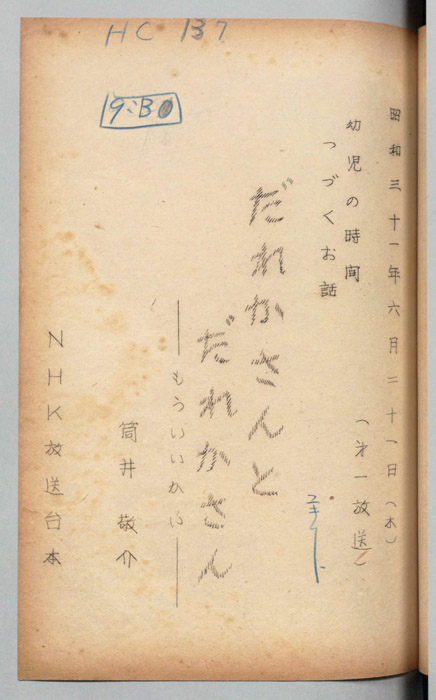 HC 137
昭和三十一年六月二十一日(木)
(才一放送)
幼児の時間
つづくお話
だれかさんと
だれかさん
―もういいかい―
筒井敬介
NHK放送台本